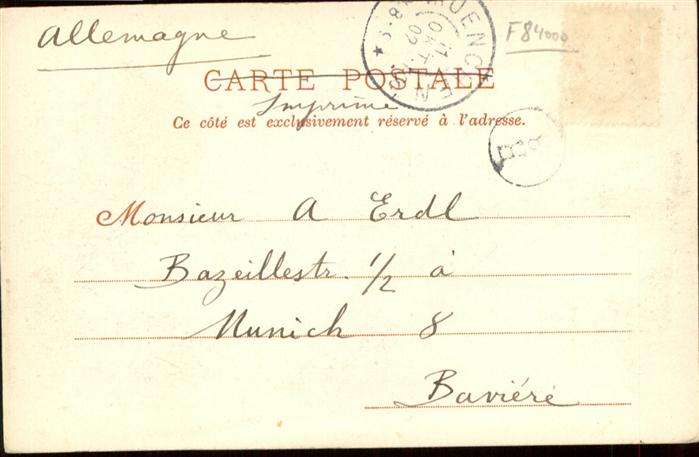 Allemagne
F84000
CARTE POSTALE
Imprimé
Ce côté est exclusivement réservé à l'adresse.
Monsieur A Erdl
Bazeillestr. 1/2 à
Munich 8
Baviéré